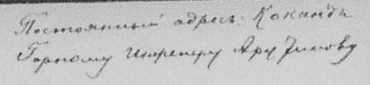 Постоянный адрес: Коканд
Горному Инженеру